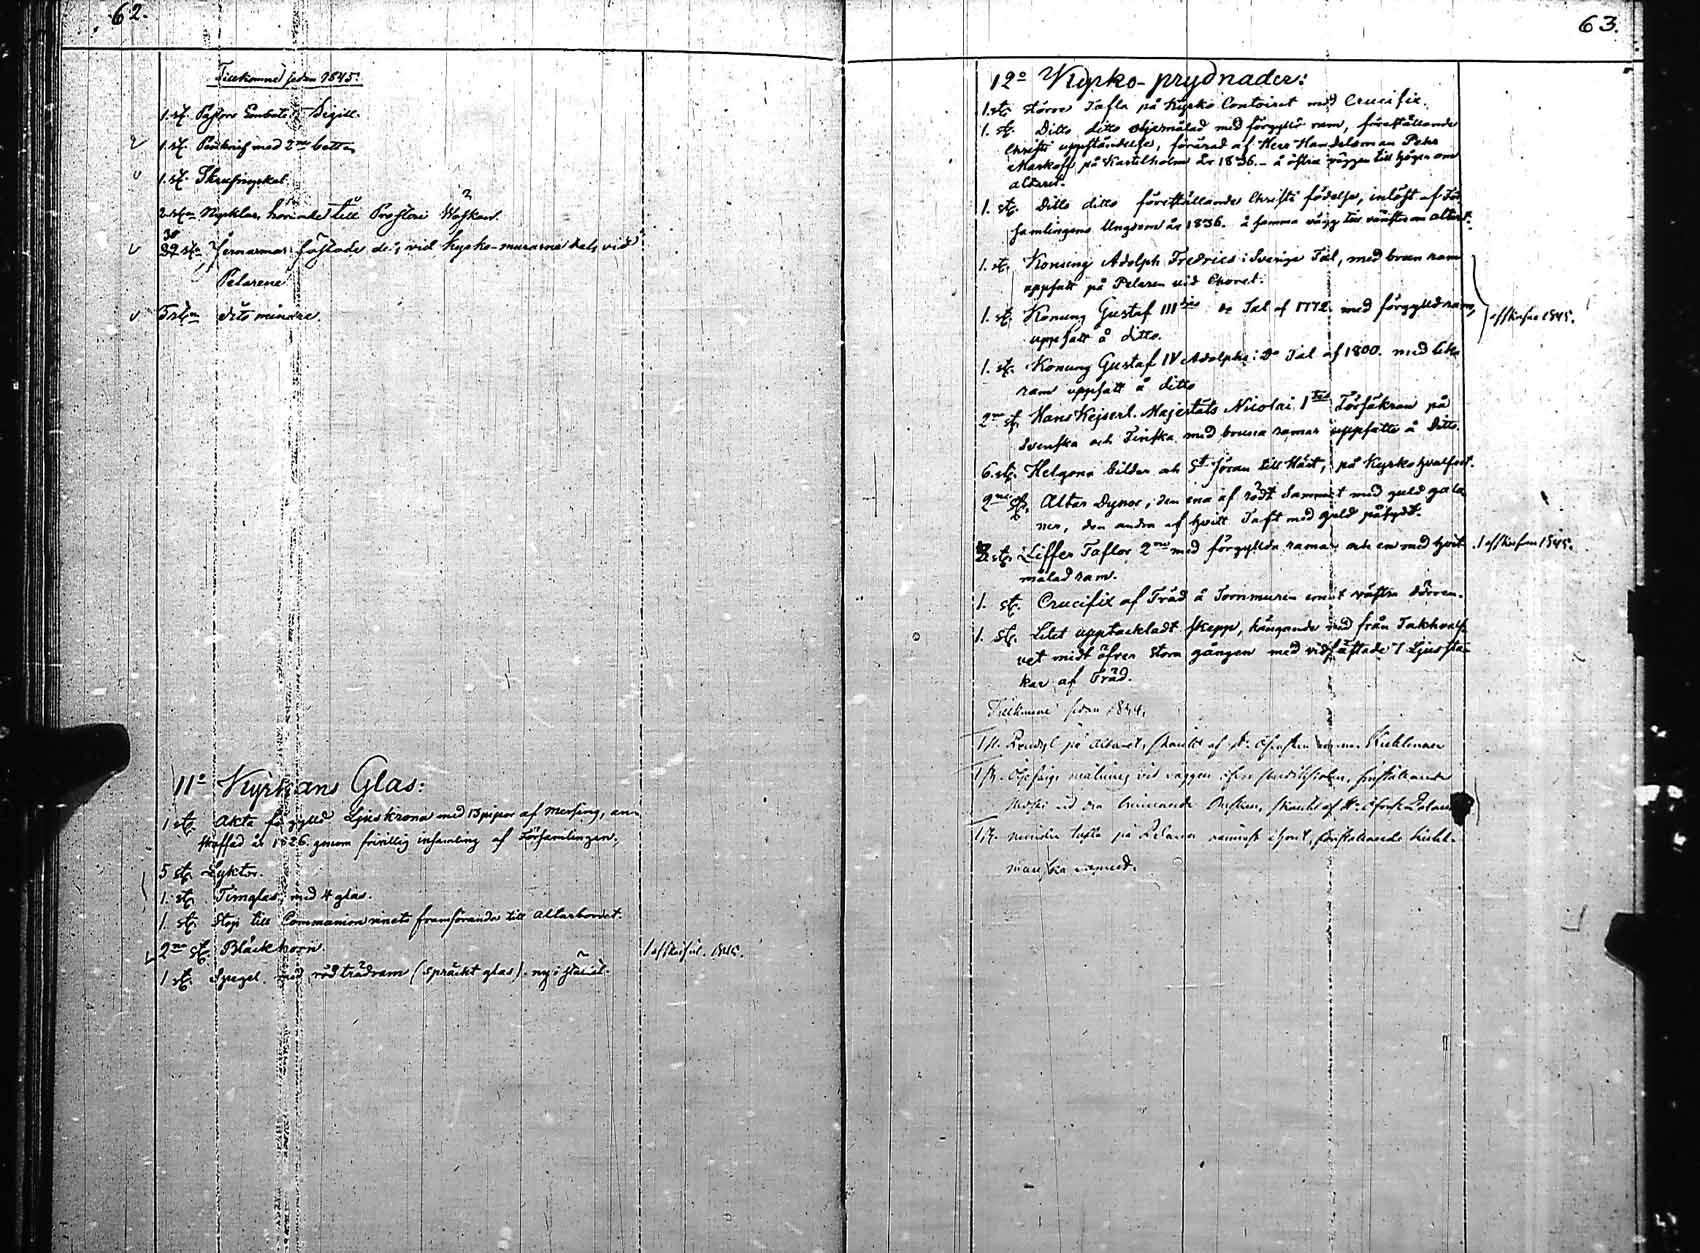 62.
Tillkomne sedan 1845:
1. st. Pastors Embets Sigill.
1. st. Pennknif med 2ne
1. st. Skrufnyckel.
2 st. Nycklar, hörande till
30
st. Jernarmar fästade vid kyrko-murarne dels vid
Pelarene
5 st. dito mindre.
11o Kyrkans Glas:
1 st. Äkta förgylld Ljuskrona med pipor af Messing, an-
skaffad år 1826. genom frivillig insamling af Församlingen.
5 st. Lyktor.
1. st. Timglas, med 4 glas.
1. st. Stop till Communion vinets framförande till Altarbordet.
2ne st. Bläckhorn. 1 afskrifvet. 1845.
1 st. Spegel. med röd trädram (spräckt glas).
63.
12o Kyrko-prydnader:
1. st. större Tafla på Kyrko Contoiret med Crucifix.
1. st. Ditto ditto oljemålad med förgylld ram, föreställande
Christi uppståndelse, förärad af Herr Handelsman Pehr
Markoff på Kastelholm år 1836. - å östra väggen till höger om
altaret.
1. st. Ditto ditto föreställande Christi födelse, inlöst af För-
samlingens Ungdom år 1836. å samma vägg till vänster om altaret.
1. st. Konung Adolph Fredrics i Sverige Tal, med brun ram
uppsatt på Pelaren vid Choret.
1. st. Konung Gustaf III Tal af 1772. med förgylld ram, afskrifne 1845.
uppsatt å ditto.
1. st. Konung Gustaf IV Adolphs: Do Tal af 1800. med lika
ram uppsatt å ditto
2ne st. Hans Kejserl. Majestäts Nicolai I Försäkran på
Svenska och Finska med bruna ramar uppsatte å Ditto.
6 st. Helgona bilder och St. Göran till Häst, på Kyrko hvalfvet.
2ne st. Altar Dynor, den ena af rödt Sammet med guld galo-
ner, den andra af hvitt Taft med guld påsydt.
st. Siffer Taflor 2ne med förgyllda ramar och en med hvit- 1 afskrifven 1845.
målad ram.
1. st. Crucifix af Träd å Tornmuren emot västra dörren.
1. st. Litet upptackladt skepp, hängande ned från Takhvalf-
vet midt öfver stora gången med vidfästade 7 Ljussta-
kar af Träd.
Tillkomne sedan 1844.
1 st. på Altaret, skänkt af
1 st. målning vid väggen föreställande
skänkt af
1 st. mindre tafla på Pelaren föreställande